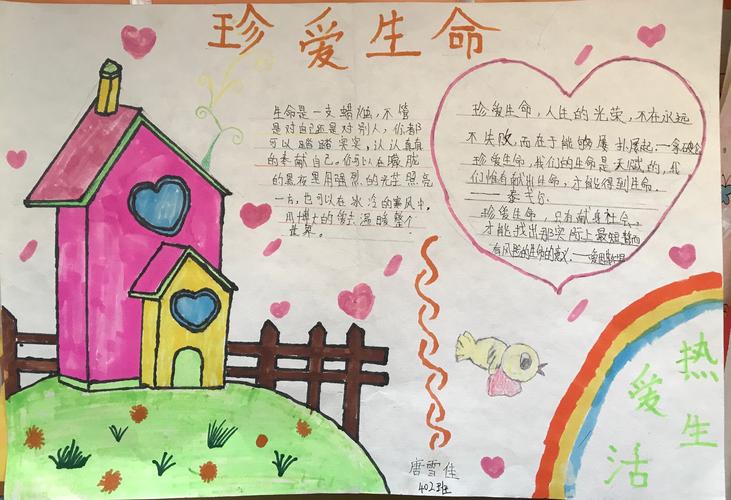 珍爱生命
生命是一支蜡烛,不管
是对自己还是对别人,你都
可以踏踏实实,认认真真
的奉献自己。你可以在朦胧
的黑夜里用强烈的光芒照亮
一方,也可以在冰冷的寒风中,
用博大的爱去温暖整个
世界。
珍爱生命,人生的光荣,不在永远
不失败,而在于能够屡扑屡起.一拿破仑
珍爱生命,我们的生命是天赋的,我
们惟有献出生命,才能得到生命.
泰戈尔
珍爱生命,只有献身社会,
才能找出那实际上最短暂而
有风险的生命的意义.一爱因斯坦
热爱生活
唐雪佳
402班